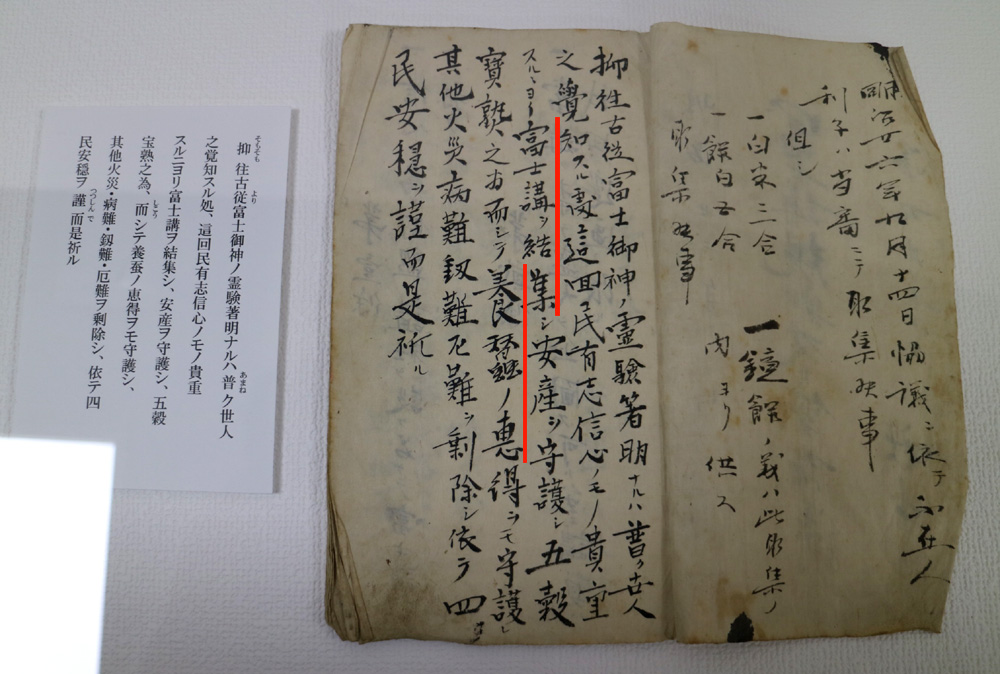 明治廿六年九月十四日協議ニ依テ
利子ハ当番ニテ取集
但シ
一白米三合
一餅白五合
取集
一鏡餅ノ義ハ此取集ノ
内ヨリ供ス
抑往古従富士御神ノ靈驗著明ナルハ普ク世人
之覺知スル處這回民有志信心ノモノ貴重
スルニヨリ富士講ヲ結集シ安産ヲ守護シ五穀
寶熟之為而シテ養蠶ノ惠得ヲモ守護シ
其他火災病難釼難厄難ヲ剰除シ依テ四
民安穏ヲ謹而是祈ル
抑 往古従富士御神ノ霊験著明ナルハ普ク世人
之覚知スル処、這回民有志信心ノモノ貴重
スルニヨリ富士講ヲ結集シ、安産ヲ守護シ、五穀
宝熟之為、而シテ養蚕ノ恵得ヲモ守護シ、
其他火災・病難・釼難・厄難ヲ剰除シ、依テ四
民安穏ヲ謹而是祈ル